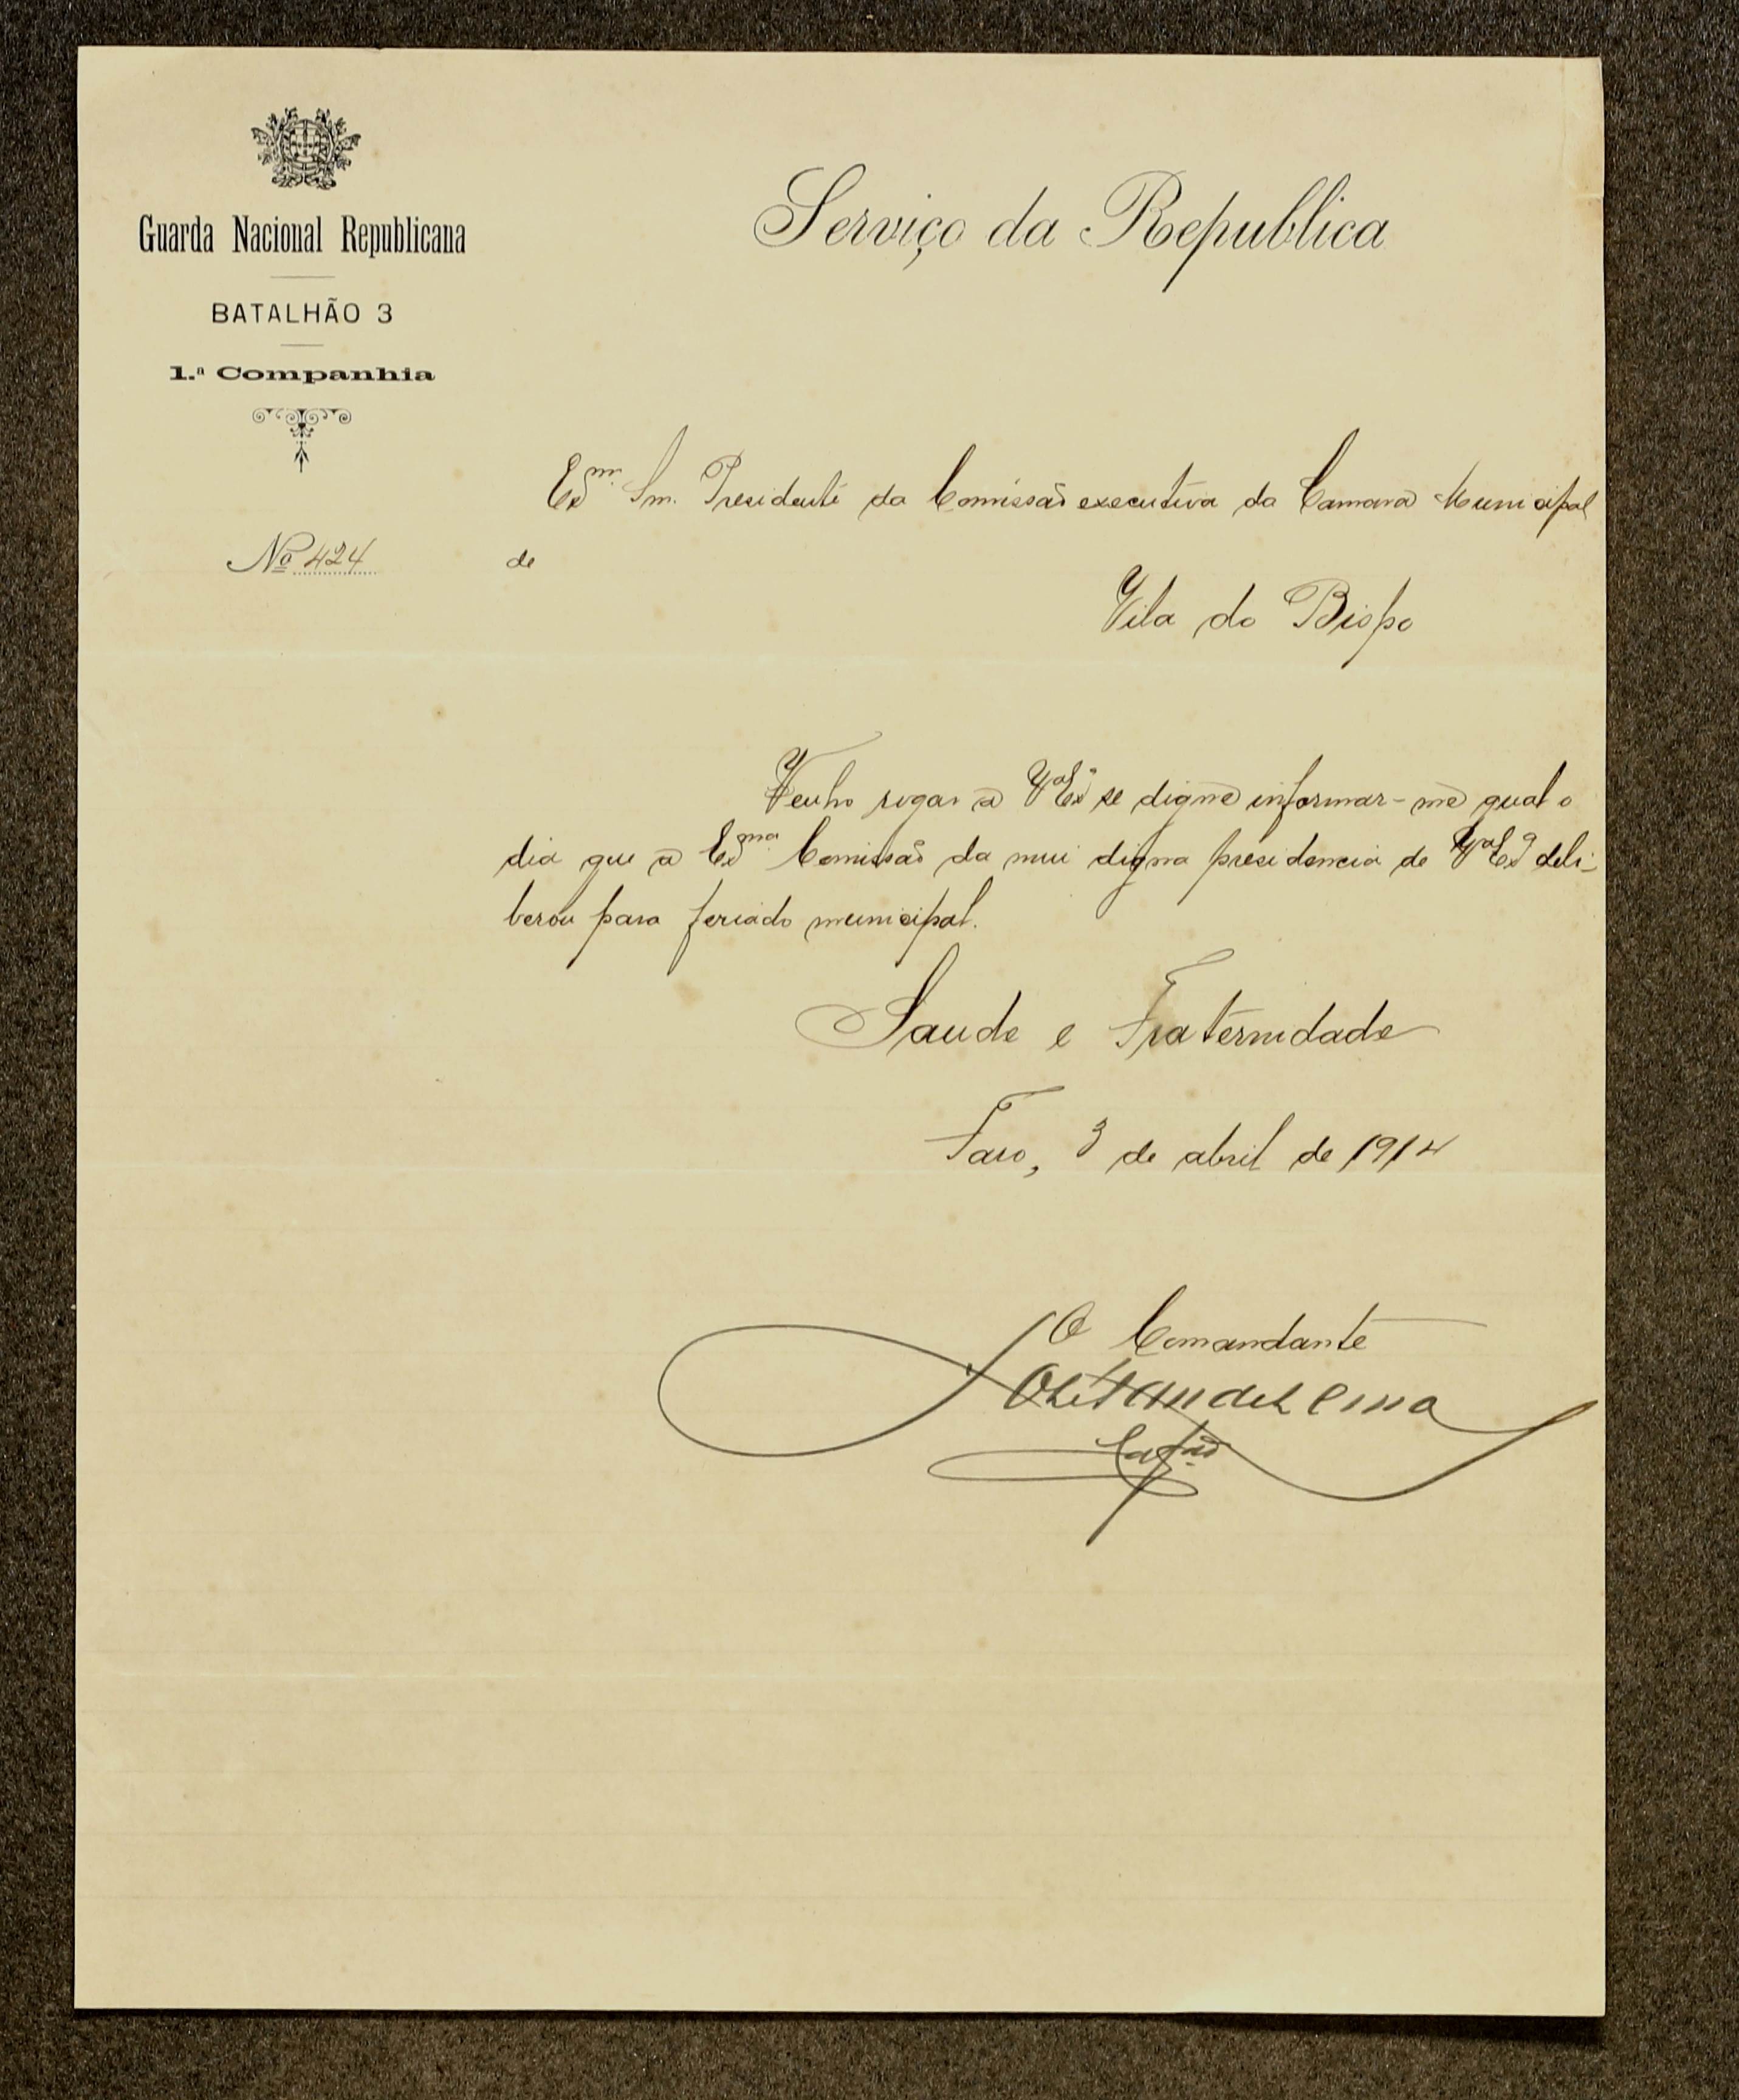 Guarda Nacional Republicana
BATALHÃO 3
1.ª Companhia
Nº 424
Serviço da Republica
Exmº Snr. Presidente da Comissão executiva da Camara Municipal
de
Vila do Bispo
Venho rogar a Vª Exª se digne informar-me qual o
dia que a Exma Comissão da mui digna presidencia de Vª Exª deli-
berou para feriado municipal.
Saude e Fraternidade
Faro, 3 de abril de 1914
O Comandante
Capão